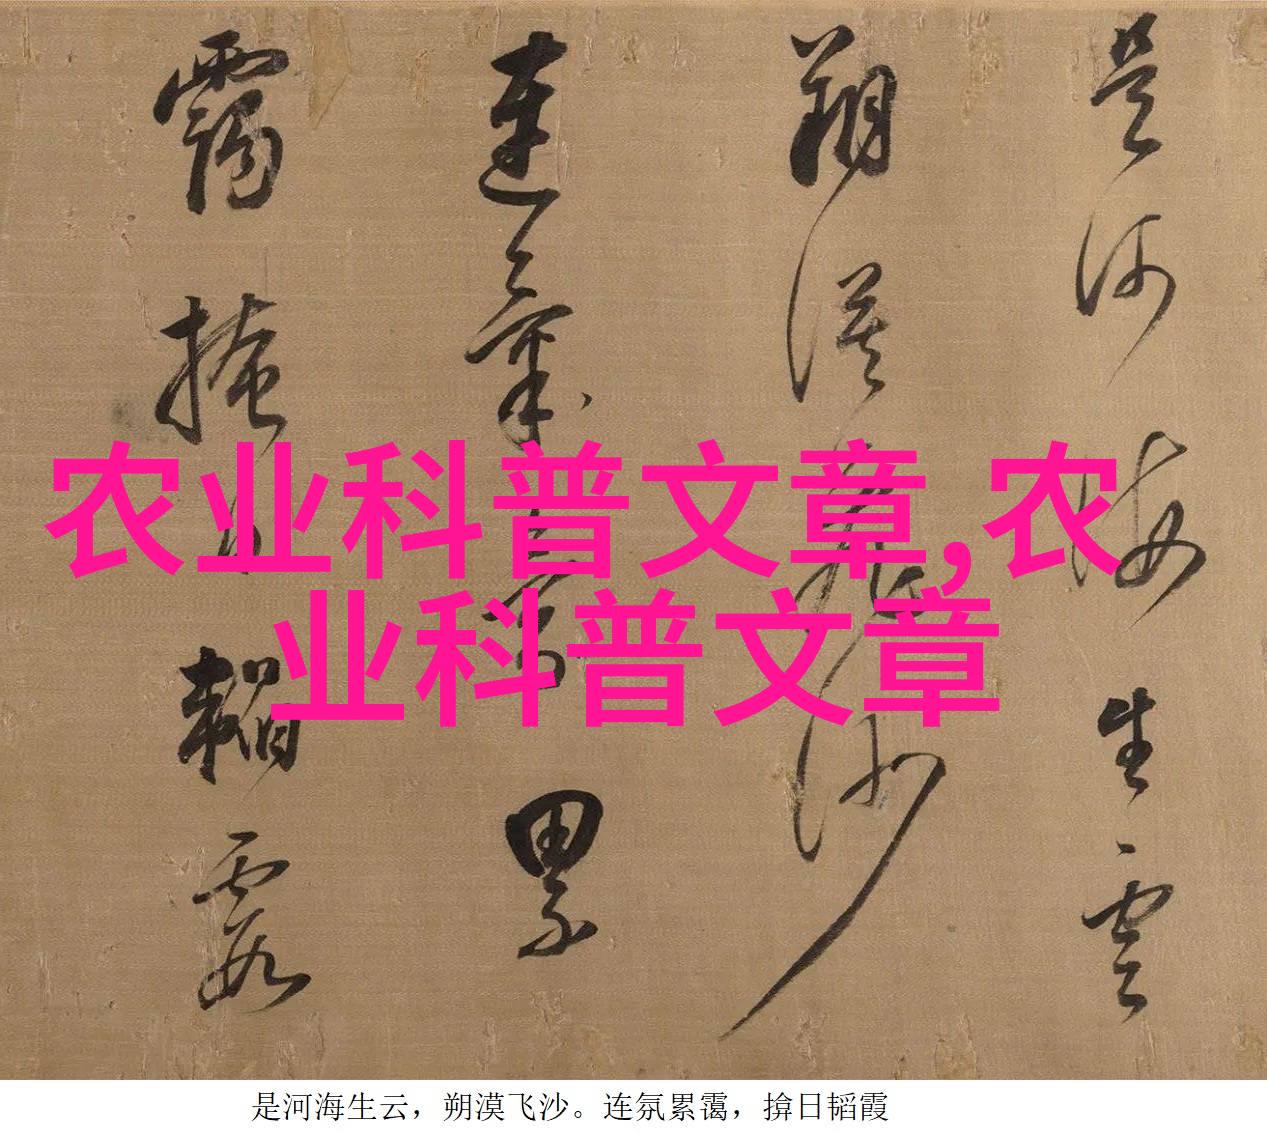 是河海生云
朔漠飞沙
连氛累
霭掩日韬霞
农业科普文章,农
业科普文章
是河海生云，朔漠飞沙。连氛累霭，揜日韬霞